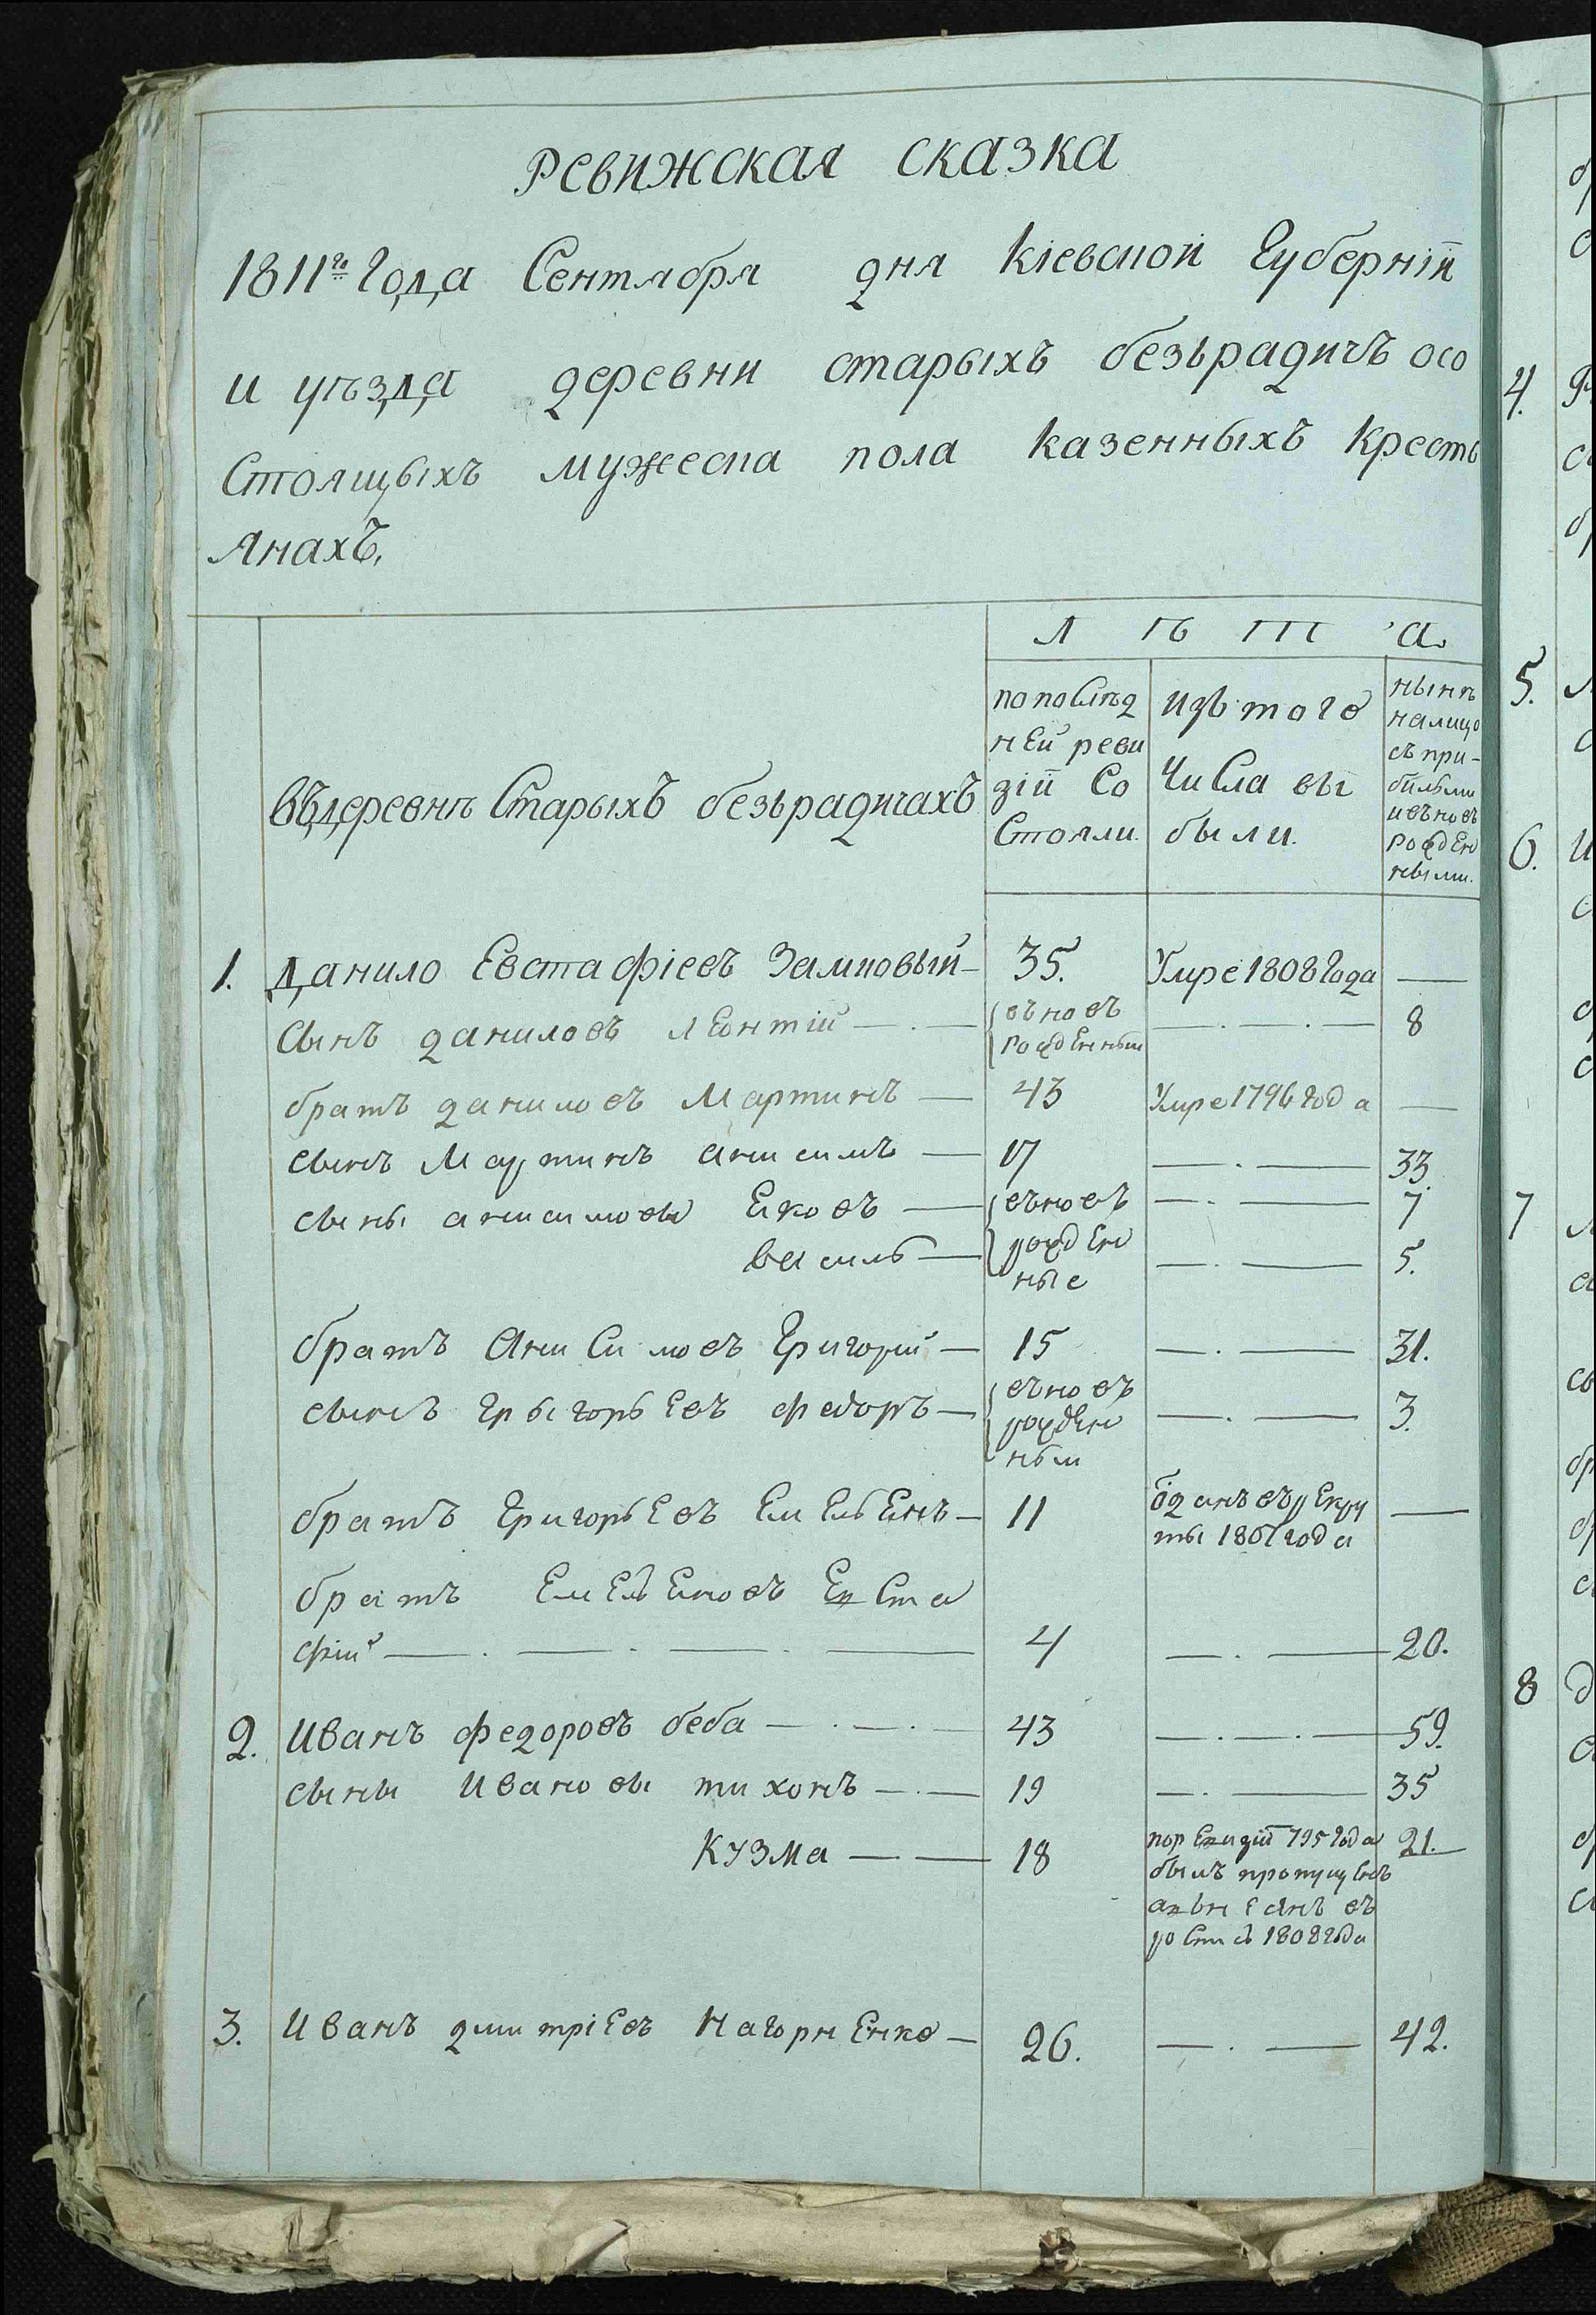 Ревижская сказка
1811го Года Сентября дня Кіевской Губерніи
и уѣзда деревни старыхъ безърадичъ осо
Стоящыхъ мужеска пола казенныхъ кресть
янахъ.
Л ѣ т а.
въ деревнѣ Старыхъ безърадичахъ
по послѣд
ней реви
зіи Со
Стояли.
изъ того
Числа вы
были.
нынѣ
налицо
съ при-
былыми
ивъновъ
рожден
ными.
1. Данило Евстафіевъ Замковый — 35. Умре 1808 Года —
Сынъ даниловъ леонтій — . — въновъ рожденный — . — . — 8
братъ даниловъ Мартинъ — 43 Умре 1796 года —
сынъ Мартинъ анисимъ — 17 — . — 33.
сыны анисимовы Яковъ — въновъ — . — 7
василь — рожден ные — . — 5.
братъ Анисимовъ Григорій — 15 — . — 31.
сынъ Грыгорьевъ федоръ — въновъ рожден ный — . — 3.
братъ Григорьевъ Емельенъ — 11 ѿданъ въ рекру —
ты 1807 года
братъ Емельеновъ Евста
фій — . — . — . — 4 — . — 20.
2. Иванъ федоровъ беба — . — . — 43 — . — . — 59.
сыны Ивановы тихонъ — . — 19 — . — 35
Кузма — — 18 по ревизіи 795 года 21.
былъ пропущенъ
авънесенъ въ
ростъ 1808 года
3. Иванъ дмитріевъ Нагорненко — 26. — . — 42.
4.
5.
6.
7
8